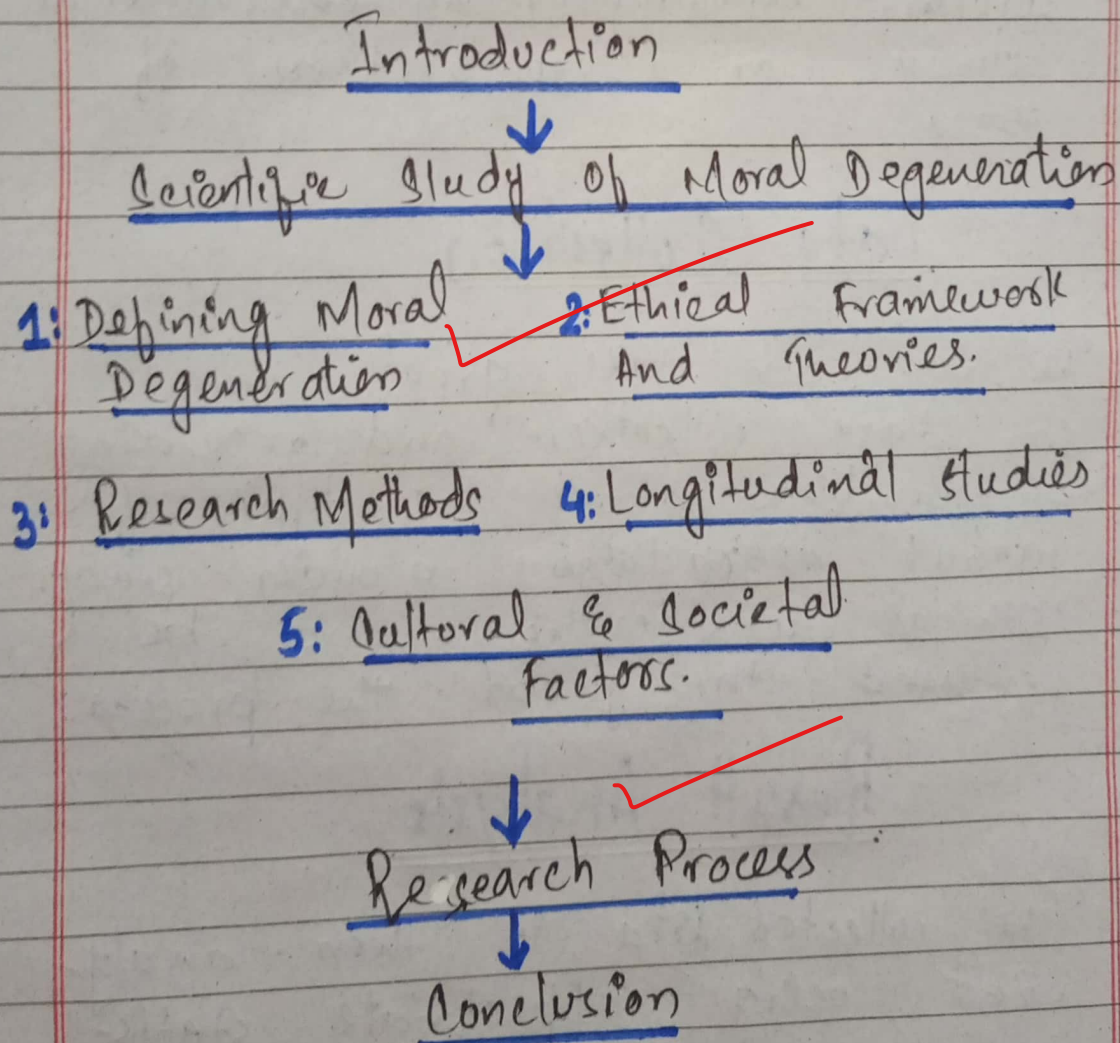 Introduction
Scientific Study Of Moral Degeneration
1: Defining Moral
Degeneration
2: Ethical Framework
And Theories.
3: Research Methods
4: Longitudinal Studies
5: Cultural & Societal
Factors.
Research Process
Conclusion